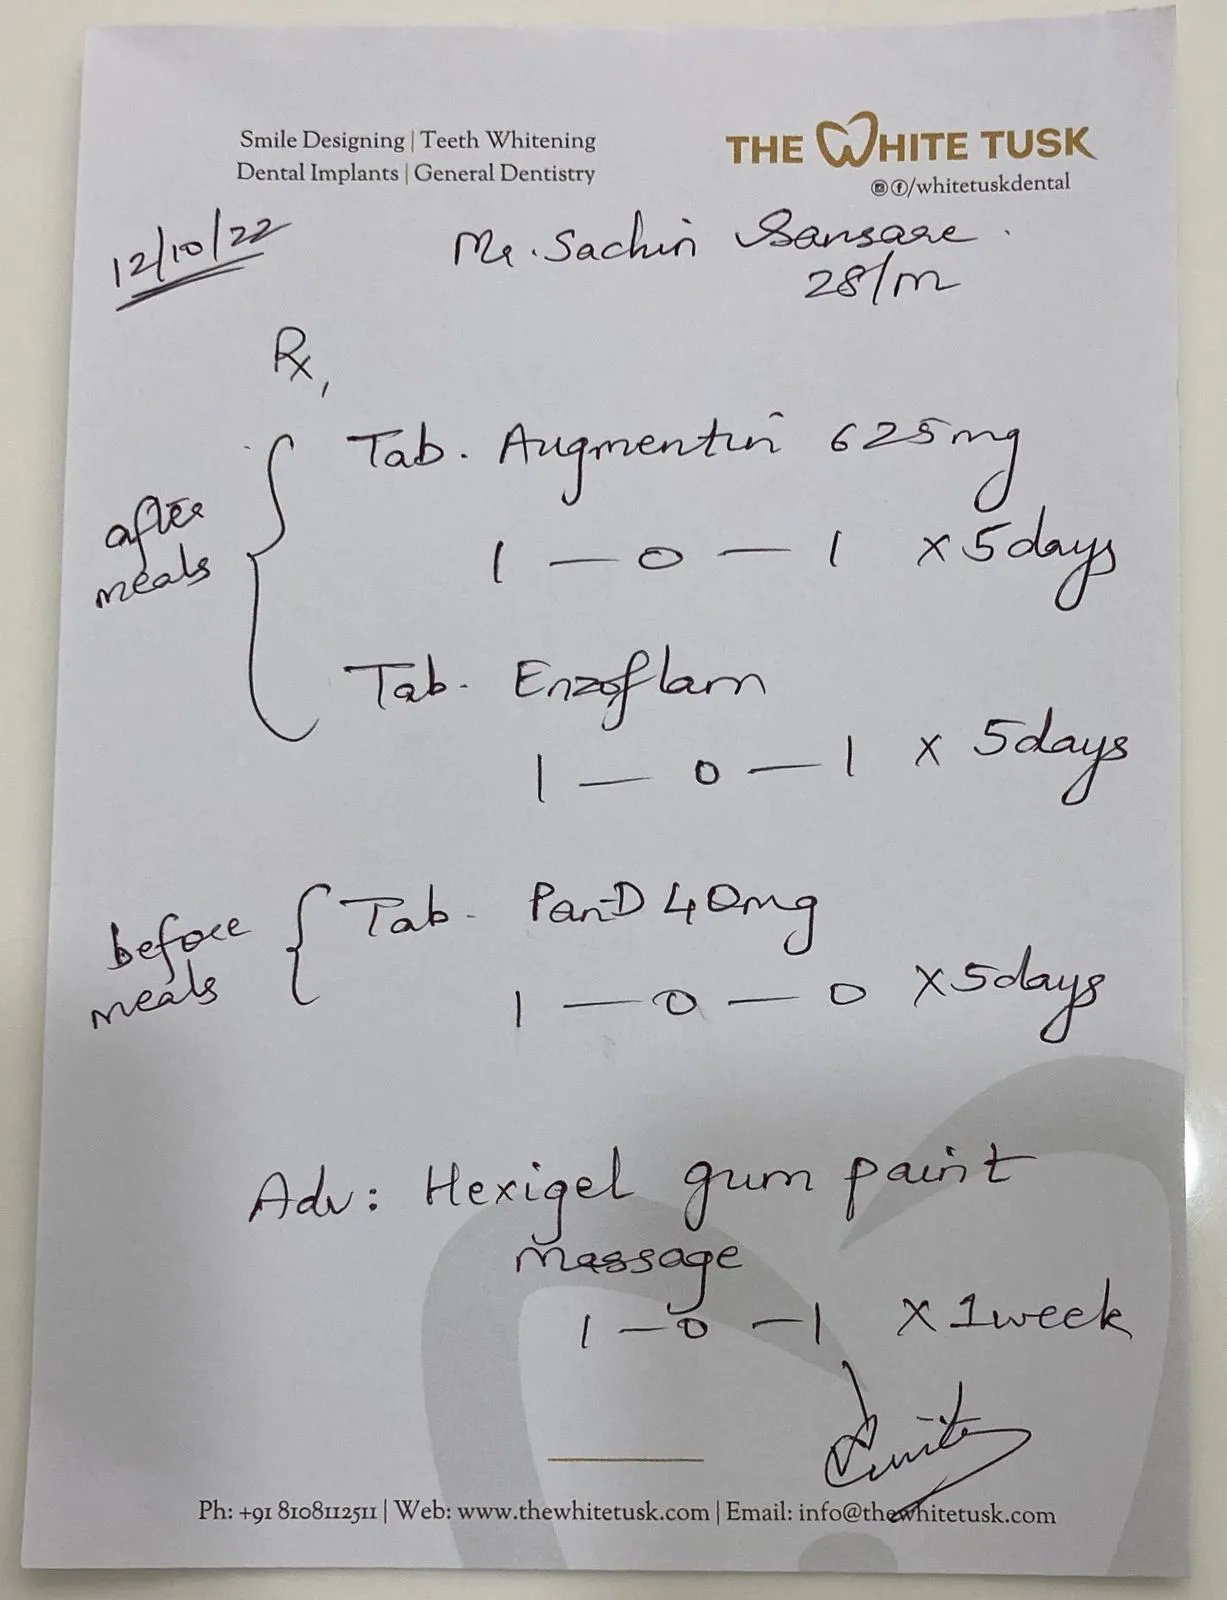 Smile Designing | Teeth Whitening
Dental Implants | General Dentistry
THE WHITE TUSK
/whitetuskdental
12/10/22
Mr. Sachin Sansare.
28/m
Rx,
after
meals
Tab. Augmentin 625mg
1 — 0 — 1 x 5days
Tab. Enzoflam
1 — 0 — 1 x 5days
before
meals
Tab. Pan-D 40mg
1 — 0 — 0 x 5days
Adv: Hexigel gum paint
massage
1 — 0 — 1 x 1week
Ph: +91 8108112511 | Web: www.thewhitetusk.com | Email: info@thewhitetusk.com